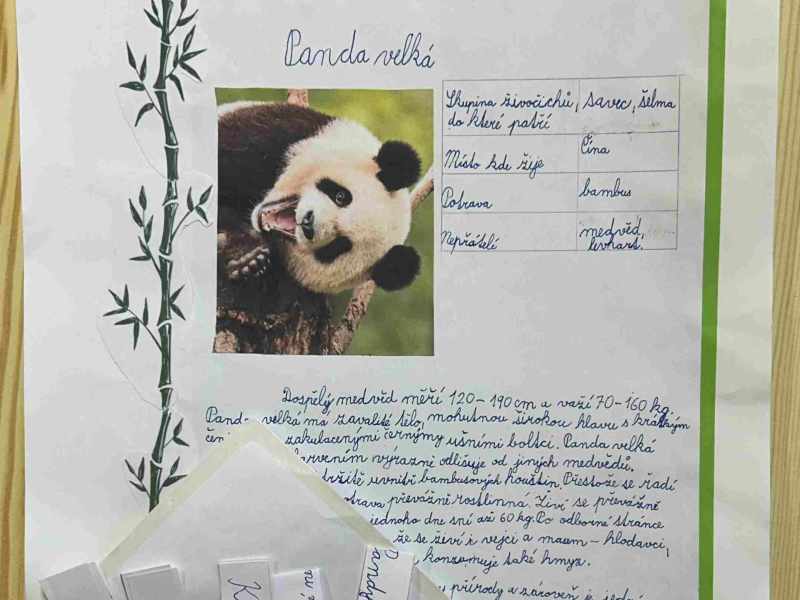 Panda velká
Skupina živočichů, do které patří savec, šelma
Místo kde žije Čína
Potrava bambus
Nepřátelé medvěd, levhart.
Dospělý medvěd měří 120-190 cm a váží 70-160 kg.
Panda velká má zavalité tělo, mohutnou širokou hlavu s krátkým
čeni zakulacenými černýmy ušními boltci. Panda velká
barvením výrazně odlišuje od jiných medvědů.
tržitě uvnitř bambusových houštin. Přestože se řadí
potrava převážně rostlinná. Živí se převážně
jednoho dne sní až 60 kg. Po odborné stránce
že se živí i vejci a masem - hlodavci,
konzumuje také hmyz.
přírody a zároveň je